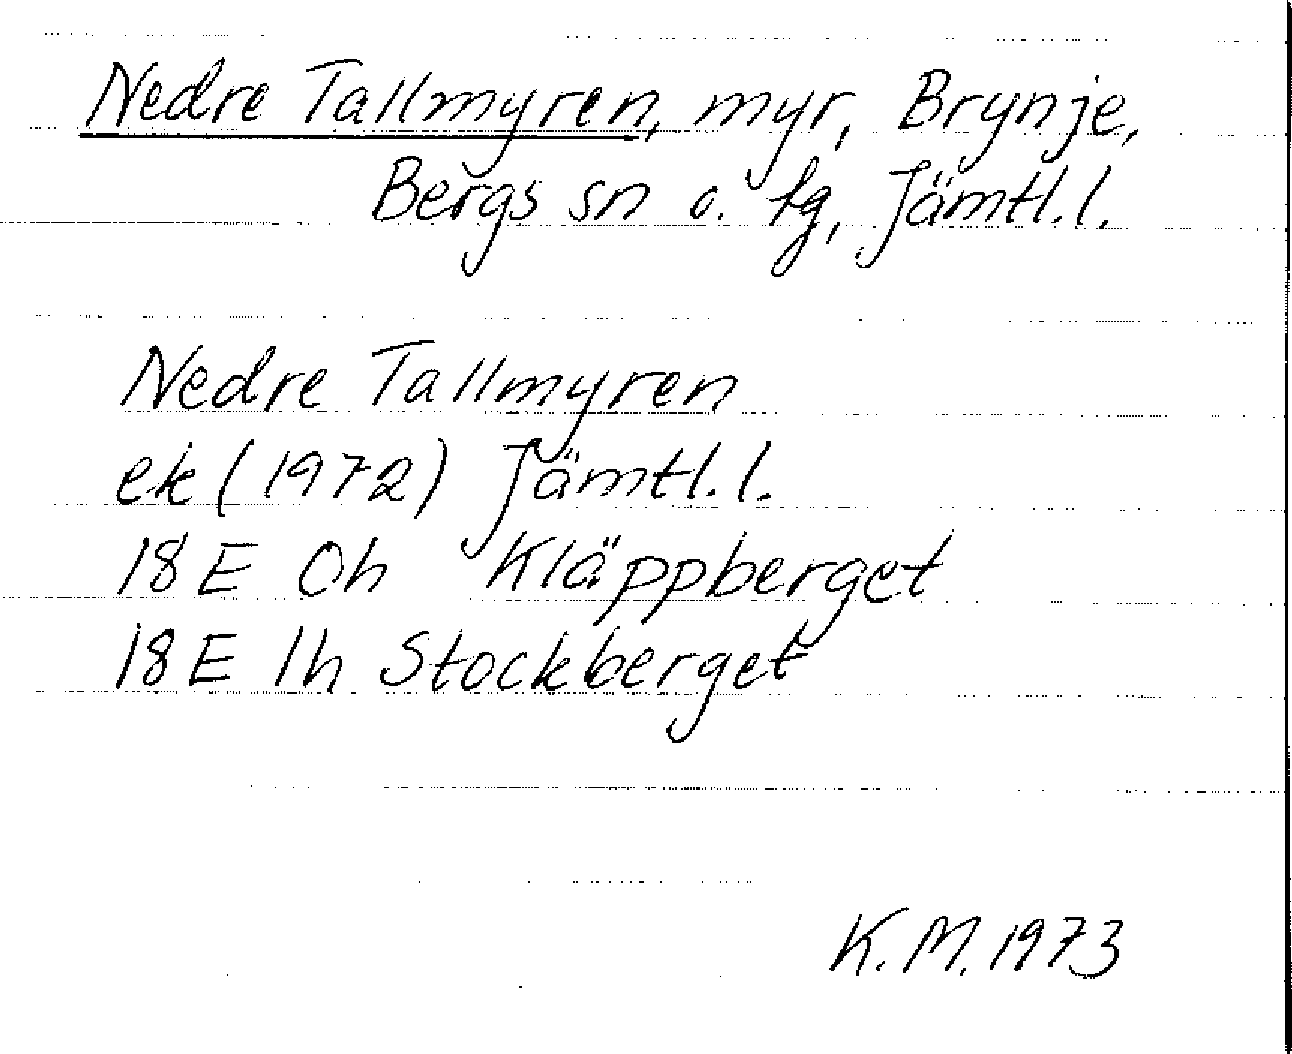 Nedre Tallmyren, myr, Brynje,
Bergs sn o. tg, Jämtl.l.
Nedre Tallmyren
ek (1972) Jämtl.l.
18 E 0h Kläppberget
18 E 1h Stockberget
K.M. 1973